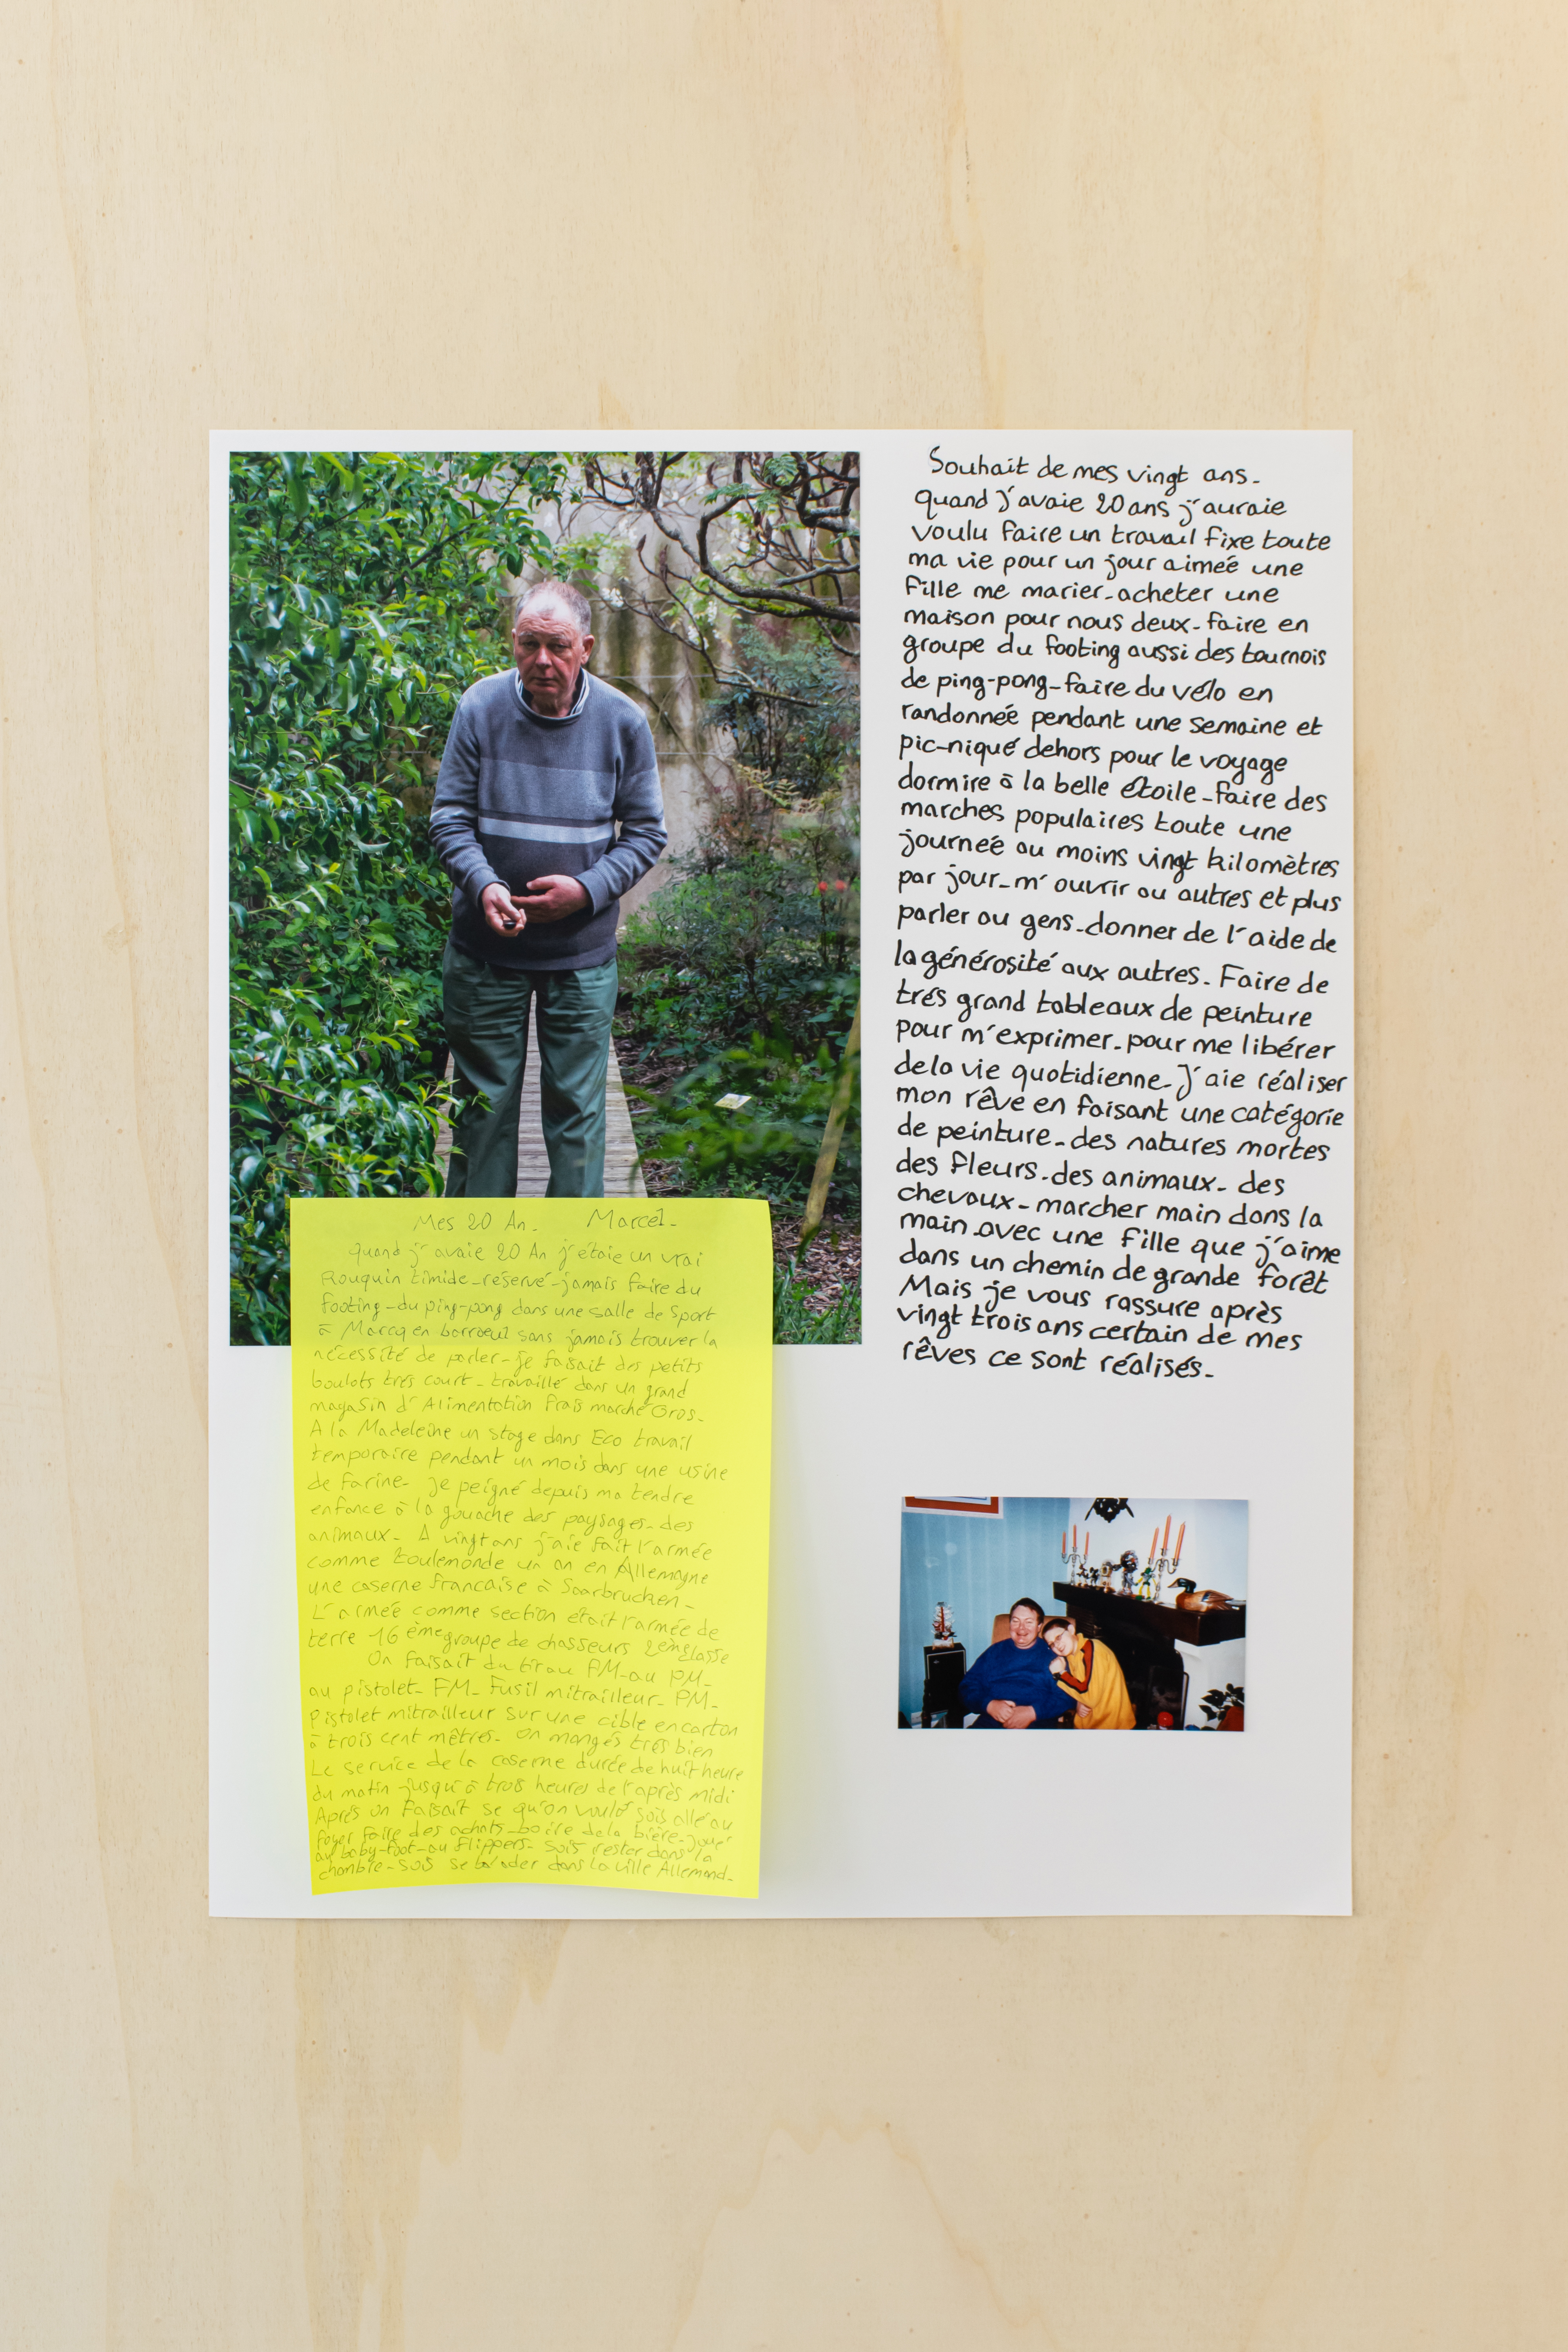 Souhait de mes vingt ans_
quand j'avaie 20 ans j'auraie
voulu faire un travail fixe toute
ma vie pour un jour aimée une
fille me marier_acheter une
maison pour nous deux_faire en
groupe du footing aussi des tournois
de ping-pong_faire du vélo en
randonnée pendant une semaine et
pic-niqué dehors pour le voyage
dormire à la belle étoile_faire des
marches populaires toute une
journée au moins vingt kilomètres
par jour_m'ouvrir au autres et plus
parler au gens_donner de l'aide de
la générosité aux autres_Faire de
trés grand tableaux de peinture
pour m'exprimer_pour me libérer
dela vie quotidienne_J'aie réaliser
mon rêve en faisant une catégorie
de peinture_des natures mortes
des fleurs_des animaux_des
chevaux_marcher main dans la
main avec une fille que j'aime
dans un chemin de grande forêt
Mais je vous rassure après
vingt trois ans certain de mes
rêves ce sont réalisés_
Mes 20 An_ Marcel_
quand j'avaie 20 An j'étaie un vrai
Rouquin timide_réservé_jamais faire du
footing_du ping-pong dans une salle de sport
à Marcq en barroeul sans jamais trouver la
nécessité de parler_je faisait des petits
boulots trés court_travaillé dans un grand
magasin d'Alimentation Frais marché Gros_
A la Madeleine un stage dans Eco travail
temporaire pendant un mois dans une usine
de farine_ Je peigné depuis ma tendre
enfance à la gouache des paysages_des
animaux_ A vingt ans j'aie fait l'armée
comme toulemonde un an en Allemagne
une caserne francaise à Saarbrucken_
L'armée comme section était l'armée de
terre 16 ème groupe de chasseurs 2ème classe
On faisait du tir au FM_au PM_
au pistolet_ FM_ Fusil mitrailleur_ PM_
Pistolet mitrailleur sur une cible en carton
à trois cent mètres_ On mangés trés bien
Le service de la caserne durée de huit heure
du matin jusqu'à trois heures de l'après midi
Aprés on faisait se qu'on voulé sois allé au
foyer faire des achats_boire dela bière_joué
au baby-foot_au flippers_ sois rester dans la
chambre_sois se balader dans la ville Allemand_